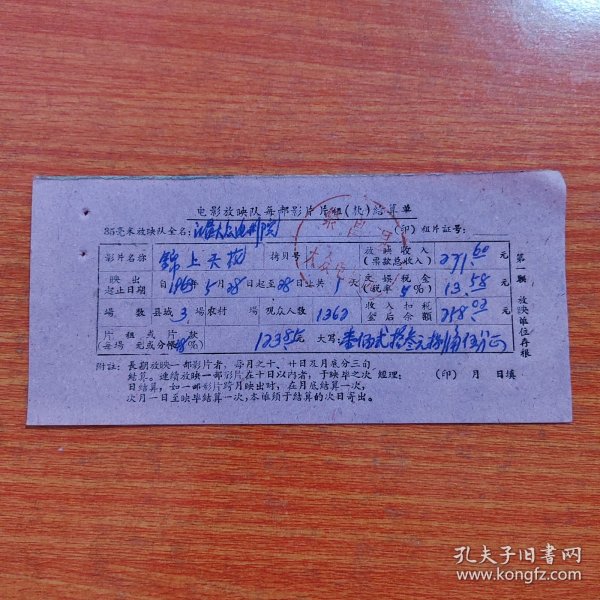 电影放映队每部影片片租(找)结算单
35毫米放映队全名: 大众电影院 (印) 租片证号:
影片名称 锦上天花 拷贝号 放映收入(票款总收入) 271.60 元
映出起止日期 自1963年5月28日起至28日止共1天 交娱税金(税率5%) 13.58 元
场数 县城3场农村 场 观众人数 1362 收入扣税金后余额 258.02 元
片租或片款(每场 元或分帐48%) 123.85元 大写: 壹佰贰拾叁元捌角伍分正
第一联 放映单位存根
附注: 长期放映一部影片者,每月之十、廿日及月底分三旬
结算。连续放映一部影片在十日以内者,于映毕之次 经理: (印) 月 日填
日结算,如一部影片跨月映出时,在月底结算一次,
次月一日至映毕结算一次,本单须于结算的次日寄出。
孔夫子旧书网
www.kongfz.com